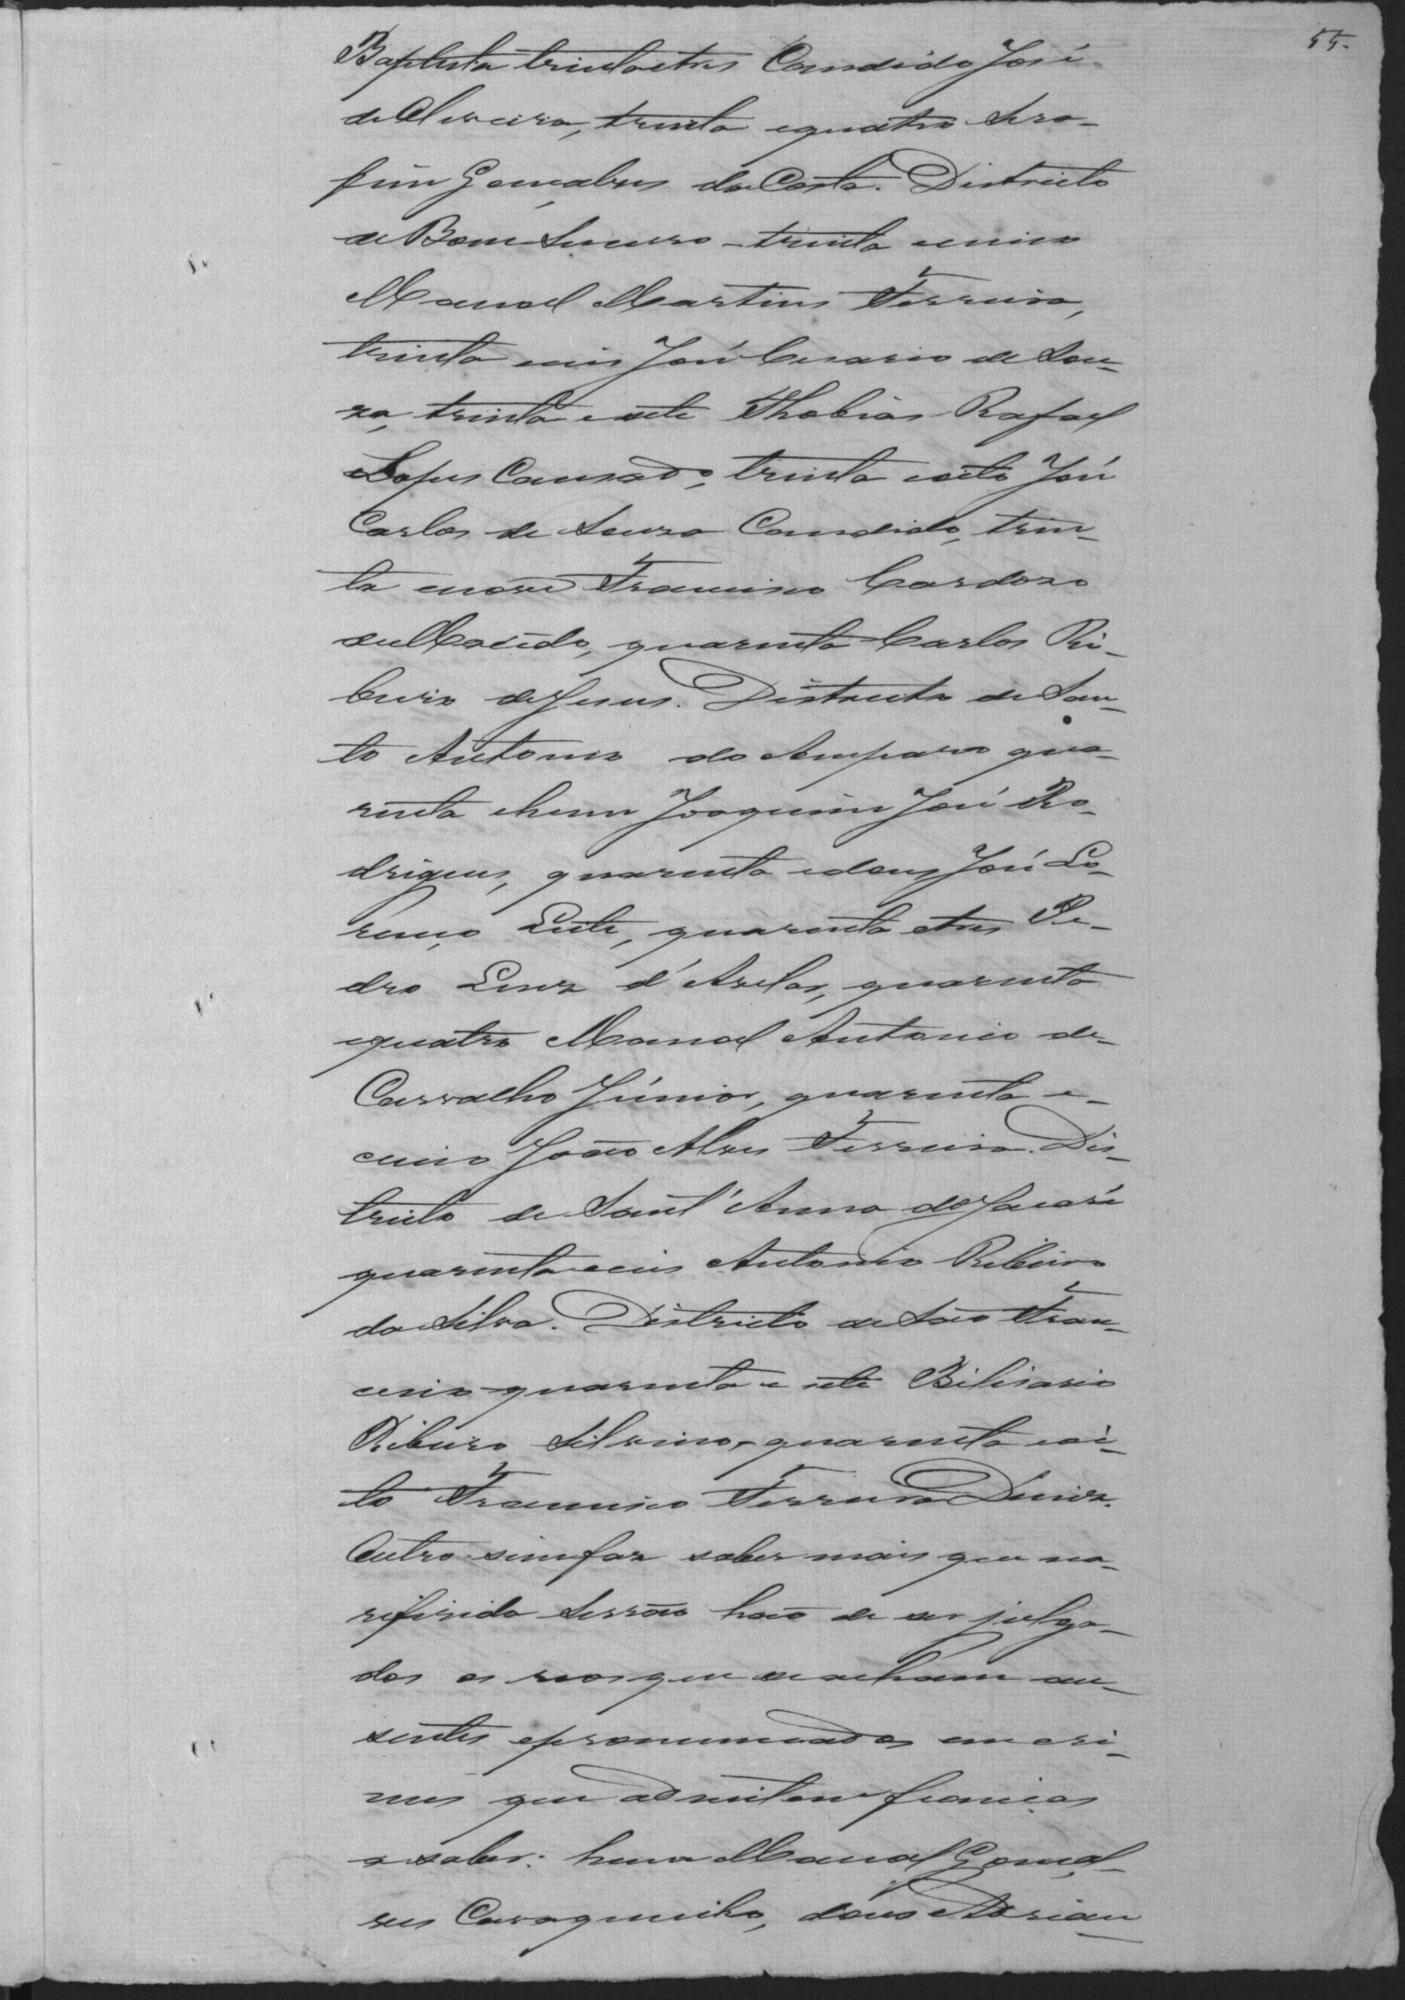 55.
Baptista trinta etres Candido José
de Oliveira, trinta equatro Sera-
fim Gonçalves da Costa. Districto
de Bom Successo - trinta ecinco
Manoel Martins Ferreira,
trinta eseis José Cesario de Sou-
za, trinta esete Thobias Rafael
Lopes Cansado, trinta eoito José
Carlos de Souza Candido, trin-
ta enove Francisco Cardozo
de Macedo, quarenta Carlos Ri-
beiro de Jesus. Districto de San-
to Antonio do Amparo qua-
renta ehum Joaquim José Ro-
drigues, quarenta edous José Lo-
renço Leite, quarenta etres Pe-
dro Luiz d'Avelar, quarenta
equatro Manoel Antonio de
Carvalho Júnior, quarenta e
cinco João Alves Ferreira. Dis-
tricto de Sant'Anna do Jacaré
quarenta eseis Antonio Ribeiro
da Silva. Districto de São Fran-
cisco quarenta e sete Bilisario
Ribeiro Silvino, quarenta eoi-
to Francisco Ferreira Diniz.
Outro sim faz saber mais que na
referida Sessão hão de ser julga-
dos os reos que se acham au-
sentes epronunciados em cri-
mes que admitem fianças
a saber: hum Manoel Gonçal-
ves Caraquinho, dous Adrian